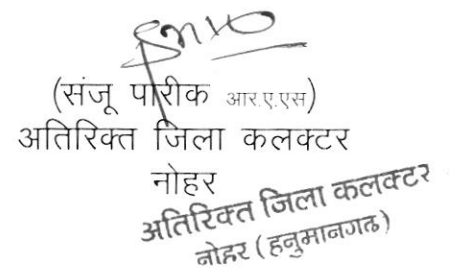 (संजू पारीक आर.ए.एस)
अतिरिक्त जिला कलक्टर
नोहर
अतिरिक्त जिला कलक्टर
नोहर (हनुमानगढ)